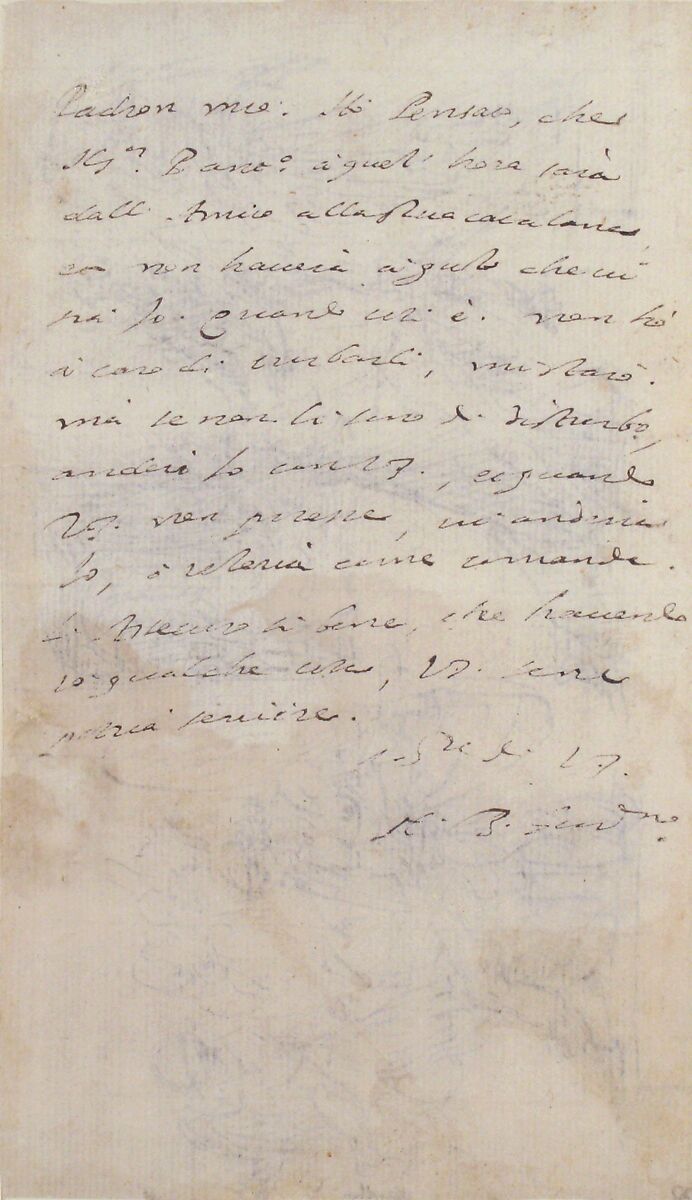 Padron mio. Hò Pensato, che
Sig.r Panc.o à quest' hora sarà
dall' Amico alla Rua catalana,
et non haverà à gusto che vi
sia Io. Quando così è. non hò
à caro di turbarli, mi starò.
mà se non li sono di disturbo,
anderò Io con V.S., et quando
V.S. non potesse, vi anderia
Io, ò resteria come comanda.
L' Assecuro si bene, che havendo
io qualche cosa, V.S. sene
potrà servire.
di V.S.